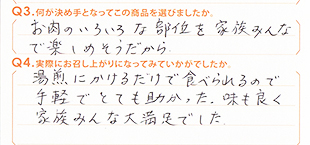 Q3.何が決め手となってこの商品を選びましたか。
お肉のいろいろな部位を家族みんな
で楽しめそうだから.
Q4.実際にお召し上がりになってみていかがでしたか。
湯煎にかけるだけで食べられるので
手軽でとても助かった.味も良く
家族みんな大満足でした.